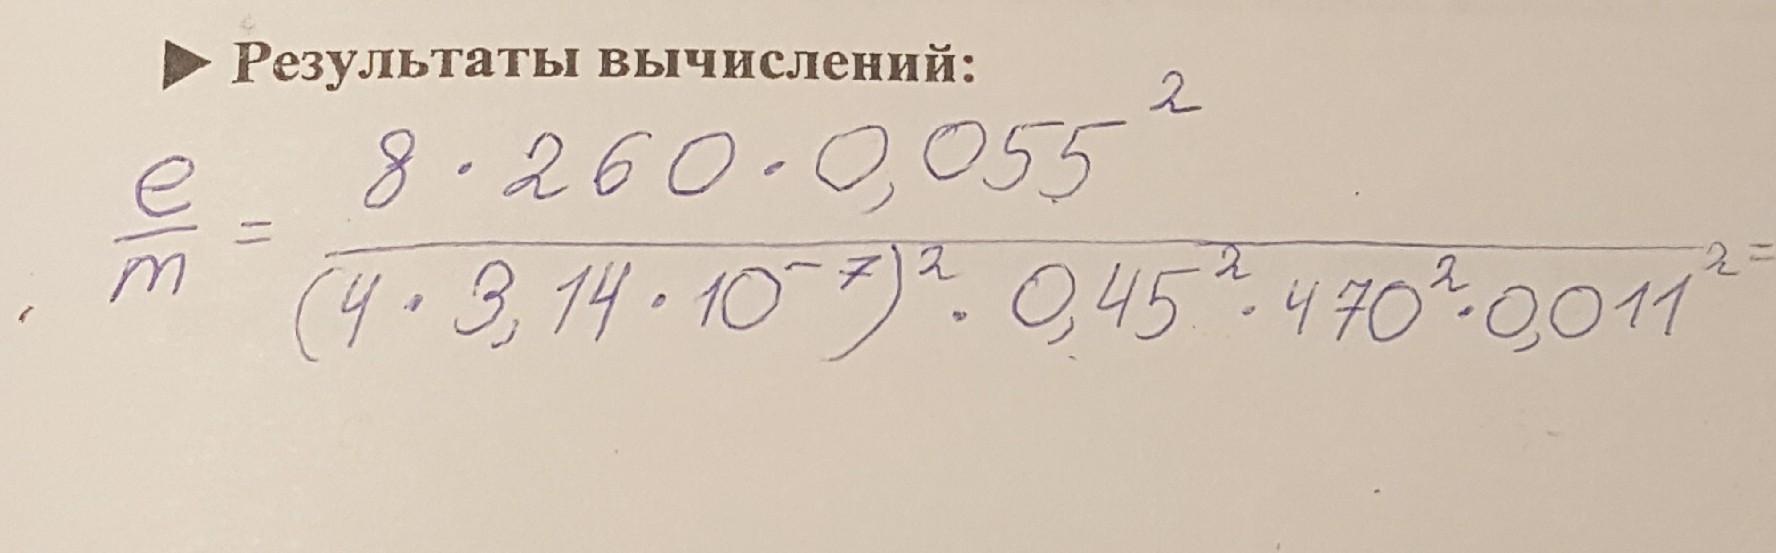 ▶ Результаты вычислений:
e/m = 8 · 260 · 0,055² / (4 · 3,14 · 10⁻⁷)² · 0,45² · 470² · 0,011² =